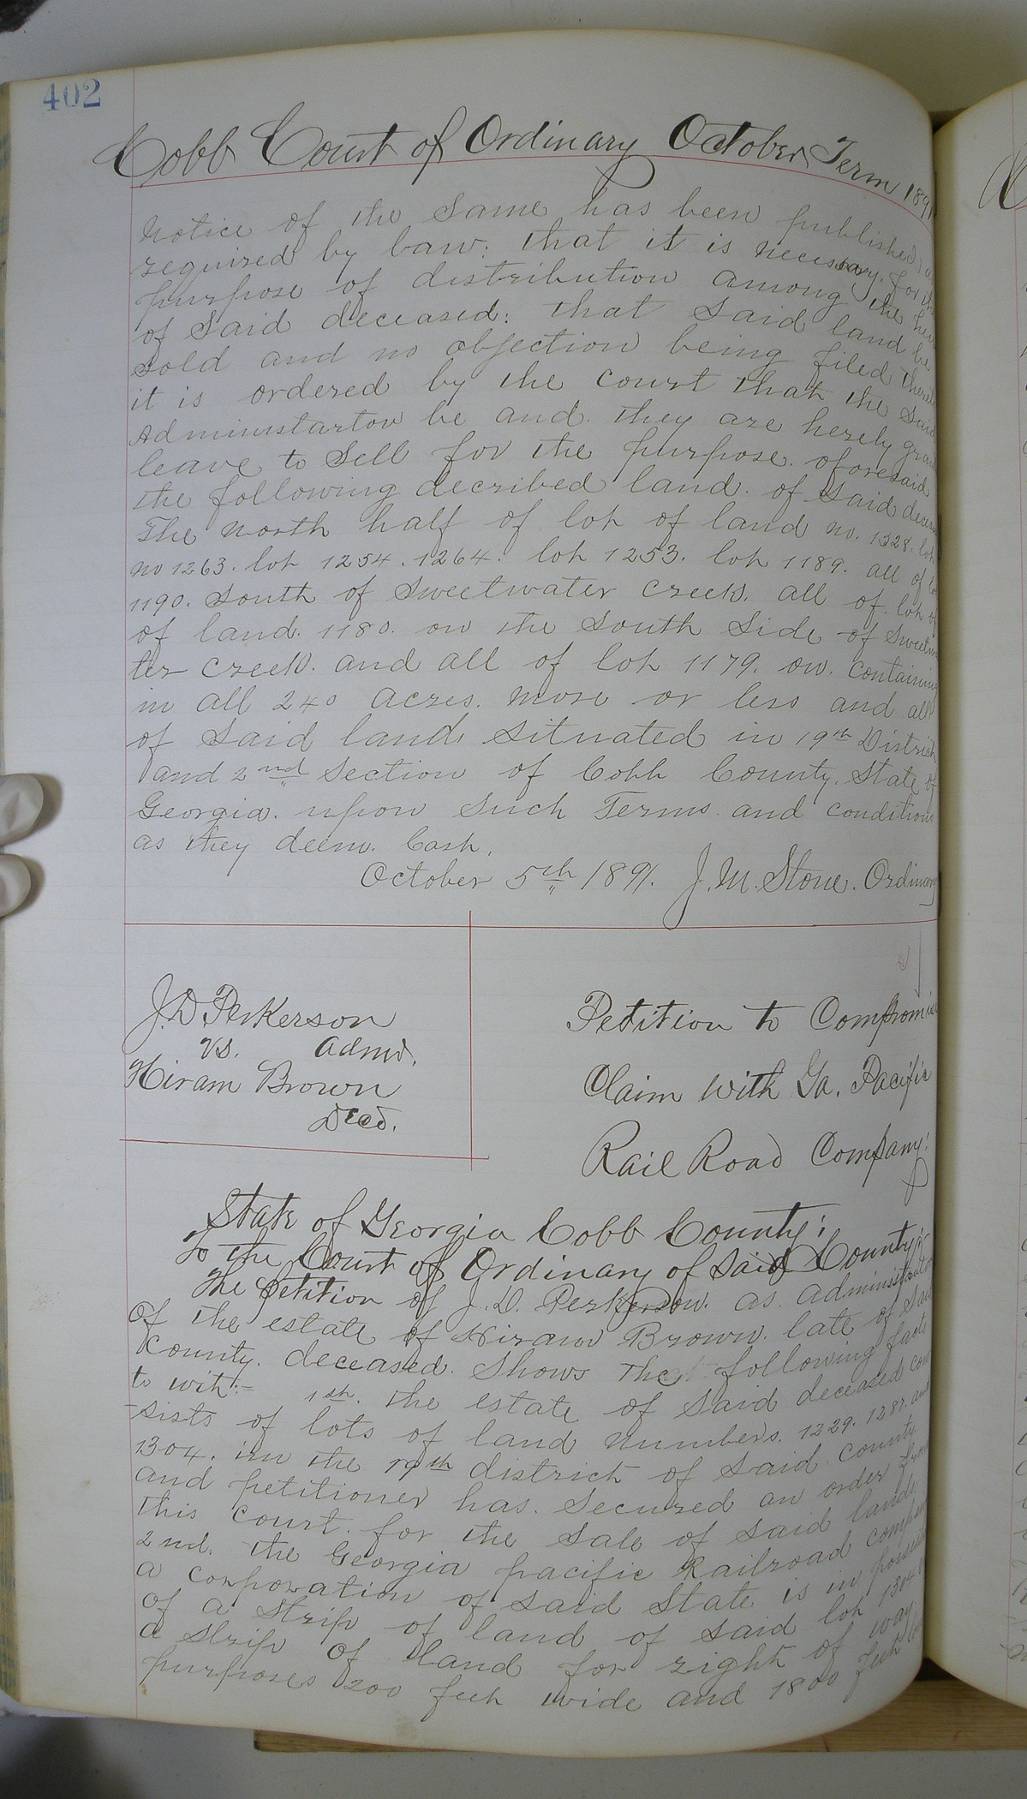 402
Cobb Court of Ordinary October Term 1891
Notice of the Same has been published
required by Law: that it is necessary for the
purpose of distribution among the
of Said deceased: that Said land be
Sold and no objection being filed
it is ordered by the court that the Said
Administartor be and they are hereby
leave to Sell for the purpose aforesaid
the following decribed land of Said
The north half of lot of land no. 1228. lot
no 1263. lot 1254. 1264. lot 1253. lot 1189. all of
1190. South of Sweetwater Creek. all of lot
of land. 1180. on the South Side of
ter Creek. and all of lot 1179. on. Containing
in all 240 acres. more or less and all
of Said land, Situated in 19th District
and 2nd Section of Cobb County. State of
Georgia. upon Such Terms and conditions
as they deem. Cash.
October 5th 1891. J. M. Stone. Ordinary
J. D. Perkerson
vs. Admr.
Hiram Brown
Decd.
Petition to
Claim with Ga. Pacific
Rail Road Company:
State of Georgia Cobb County:
To the Court of Ordinary of Said County:
The petition of J. D. Perkerson. as
of the estate of Hiram Brown. late of Said
County. deceased. Shows The following facts
to wit:- 1st. the estate of Said deceased con
-sists of lots of land Numbers. 1229. 1287. and
1304. in the 19th district of Said County
and petitioner has. Secured an order from
this Court. for the Sale of Said lands
2nd. the Georgia pacific Railroad
a corporation of Said State is in
of a Strip of land of Said lot 1304
a Strip of land for right of way
purposes 200 feet wide and 1800 feet